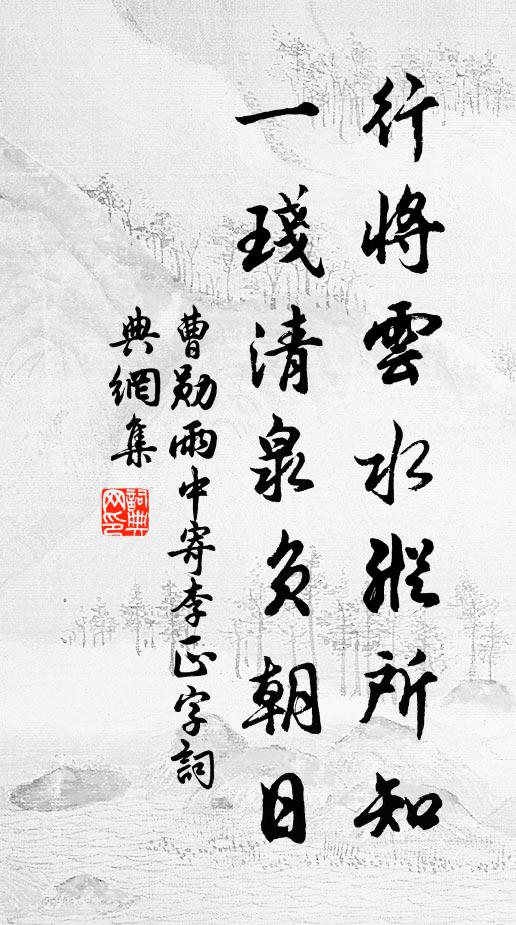 行將雲水縱所知
一琖清泉負朝日
曹勛雨中寄李正字詞
典網集
詞典网印